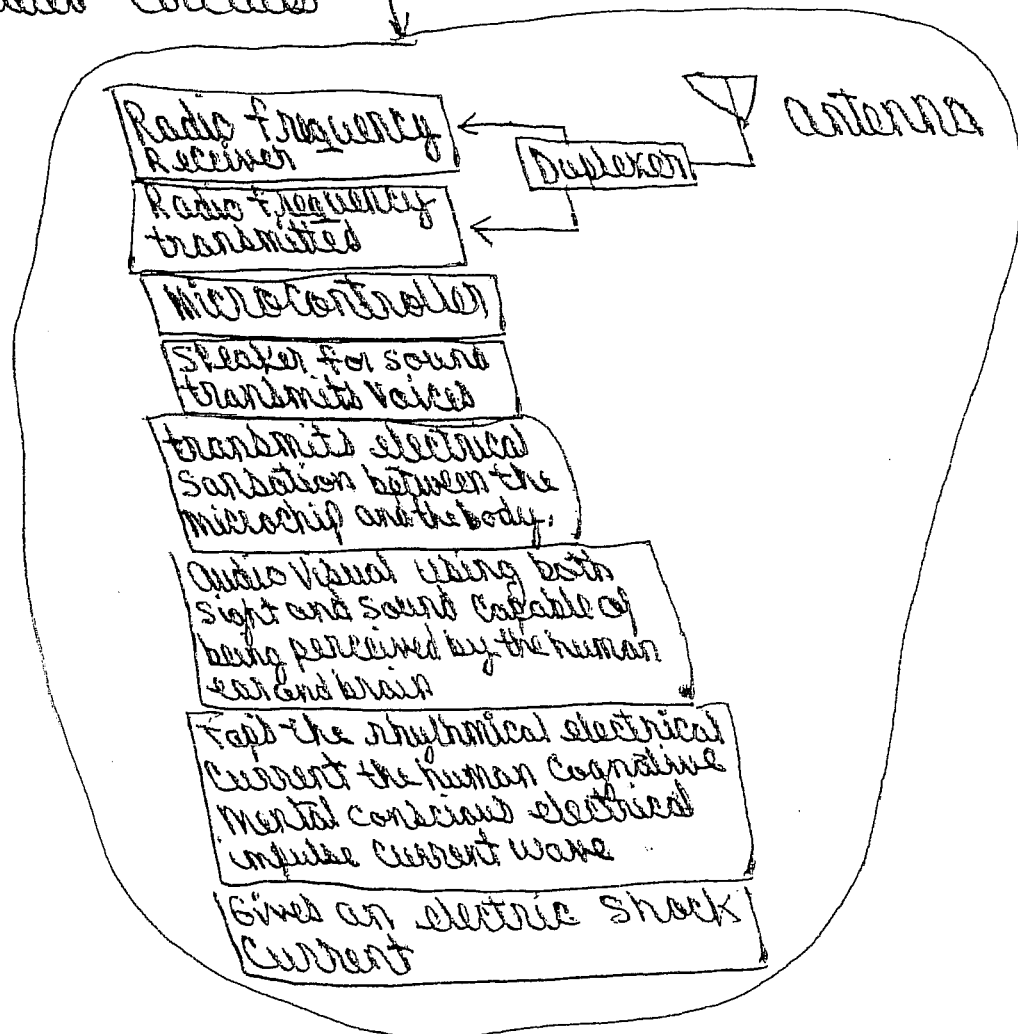 Radio frequency
Receiver
antenna
Duplexer
Radio frequency
transmitted
Microcontroller
Speaker for sound
transmits voices
transmits electrical
sansation between the
microchip and the body.
audio visual using both
sight and sound capable of
being perceived by the human
ear and brain
Taps the rhythmical electrical
current the human cognative
mental conscious electrical
impulse current wave
Gives an electric shock
Current